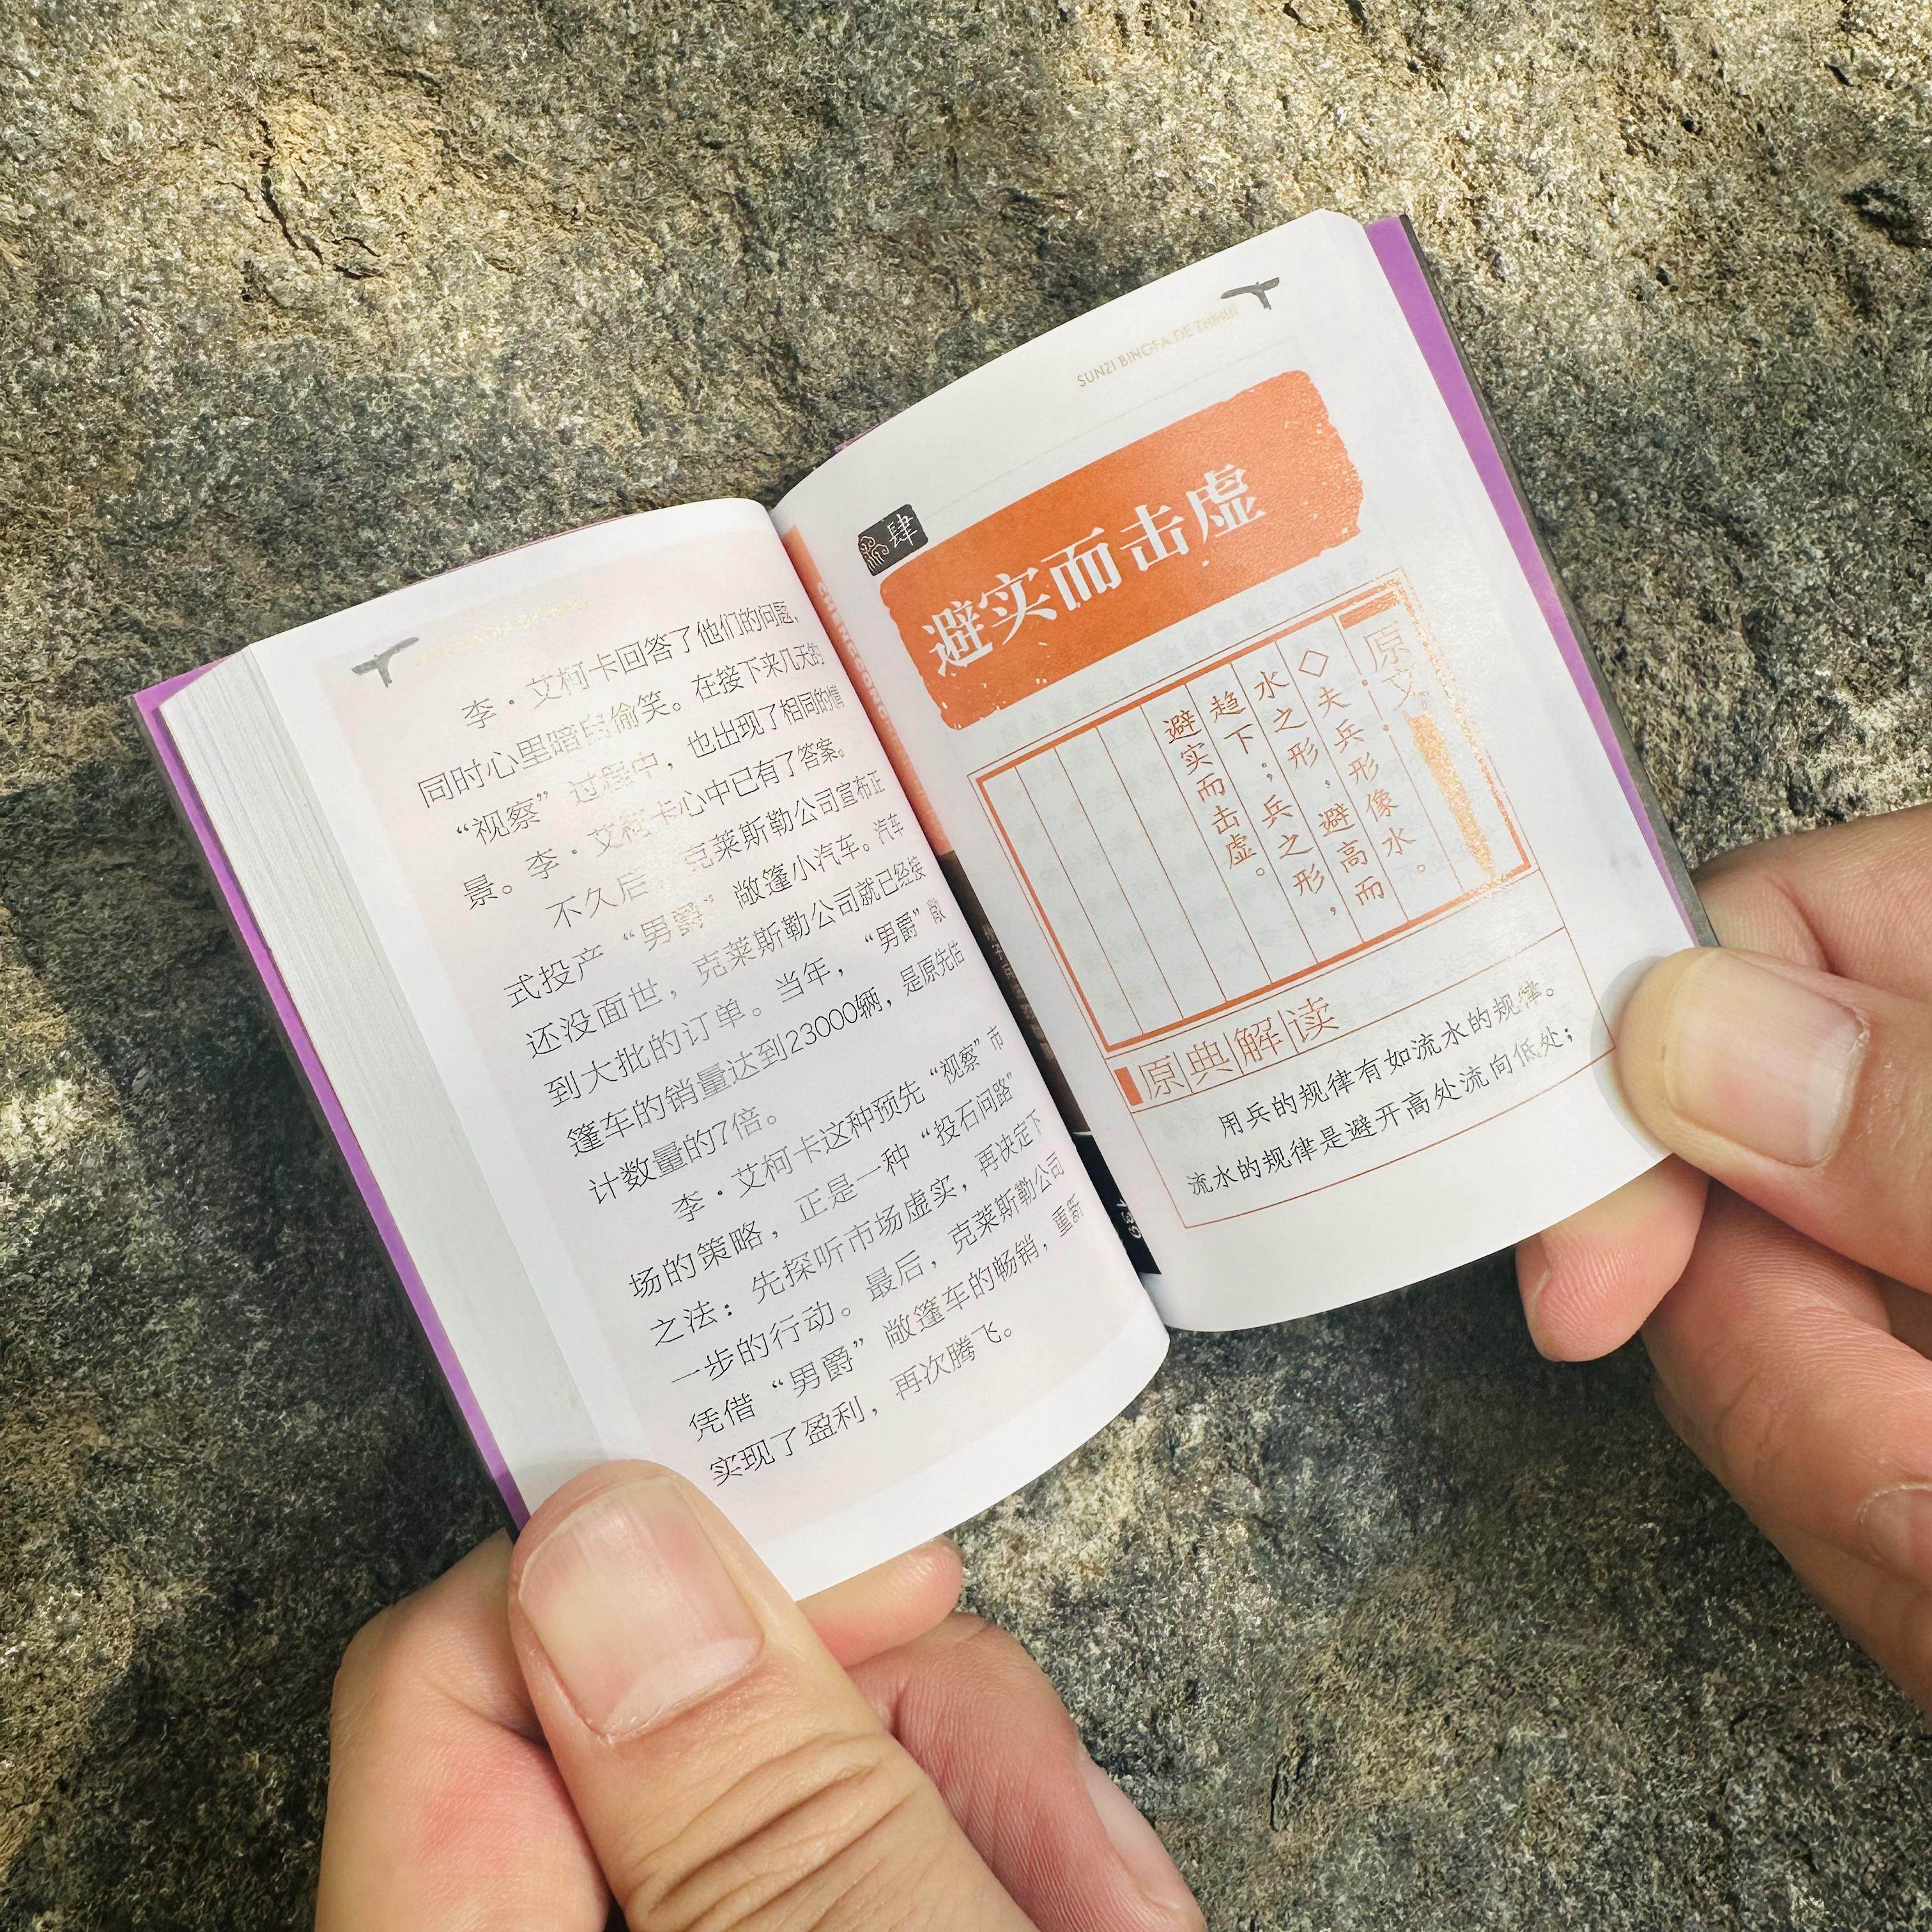 李·艾柯卡回答了他们的问题,
同时心里暗自偷笑。在接下来几天的
“视察”过程中，也出现了相同的情
景。李·艾柯卡心中已有了答案。
不久后，克莱斯勒公司宣布正
式投产“男爵”敞篷小汽车。汽车
还没面世，克莱斯勒公司就已经接
到大批的订单。当年，“男爵”敞
篷车的销量达到23000辆，是原先估
计数量的7倍。
李·艾柯卡这种预先“视察”市
场的策略，正是一种“投石问路”
之法：先探听市场虚实，再决定下
一步的行动。最后，克莱斯勒公司
凭借“男爵”敞篷车的畅销，重新
实现了盈利，再次腾飞。
SUNZI BINGFA DE ZHIHUI
肆
避实而击虚
原文
◇夫兵形像水。
水之形，避高而
趋下；兵之形，
避实而击虚。
原典解读
用兵的规律有如流水的规律。
流水的规律是避开高处流向低处；
139